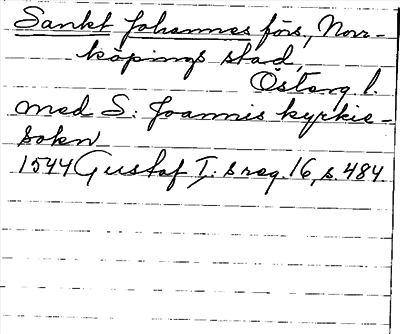 Sankt Johannes förs., Norr-
köpings stad,
Österg. l.
med S: Joannis kyrkie-
sokn
1544 Gustaf I: s reg. 16, s. 484